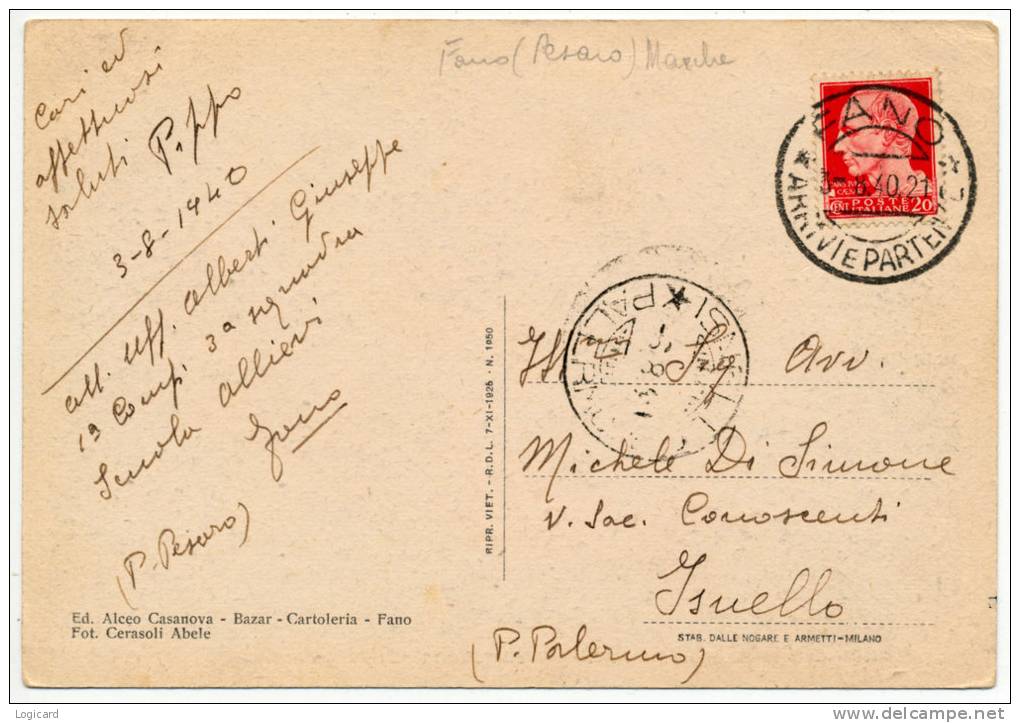 Fano (Pesaro) Marche
Cari ed
affettuosi
saluti Pippo
3-8-1940
all. uff. Alberti Giuseppe
1ª Comp. 3ª squadra
Scuola Allievi
Fano
(P. Pesaro)
Ed. Alceo Casanova - Bazar - Cartoleria - Fano
Fot. Cerasoli Abele
RIPR. VIET. - R.D.L. 7-XI-1925 - N. 1950
FANO
3-8.40.21
ARRIVI E PARTENZE
POSTE
ITALIANE
CENT 20
ISNELLO
PALERMO
Ill. Sig. Avv.
Michele Di Simone
V. Sac. Conoscenti
Isnello
(P. Palermo)
STAB. DALLE NOGARE E ARMETTI-MILANO
Logicard
delcampe.net